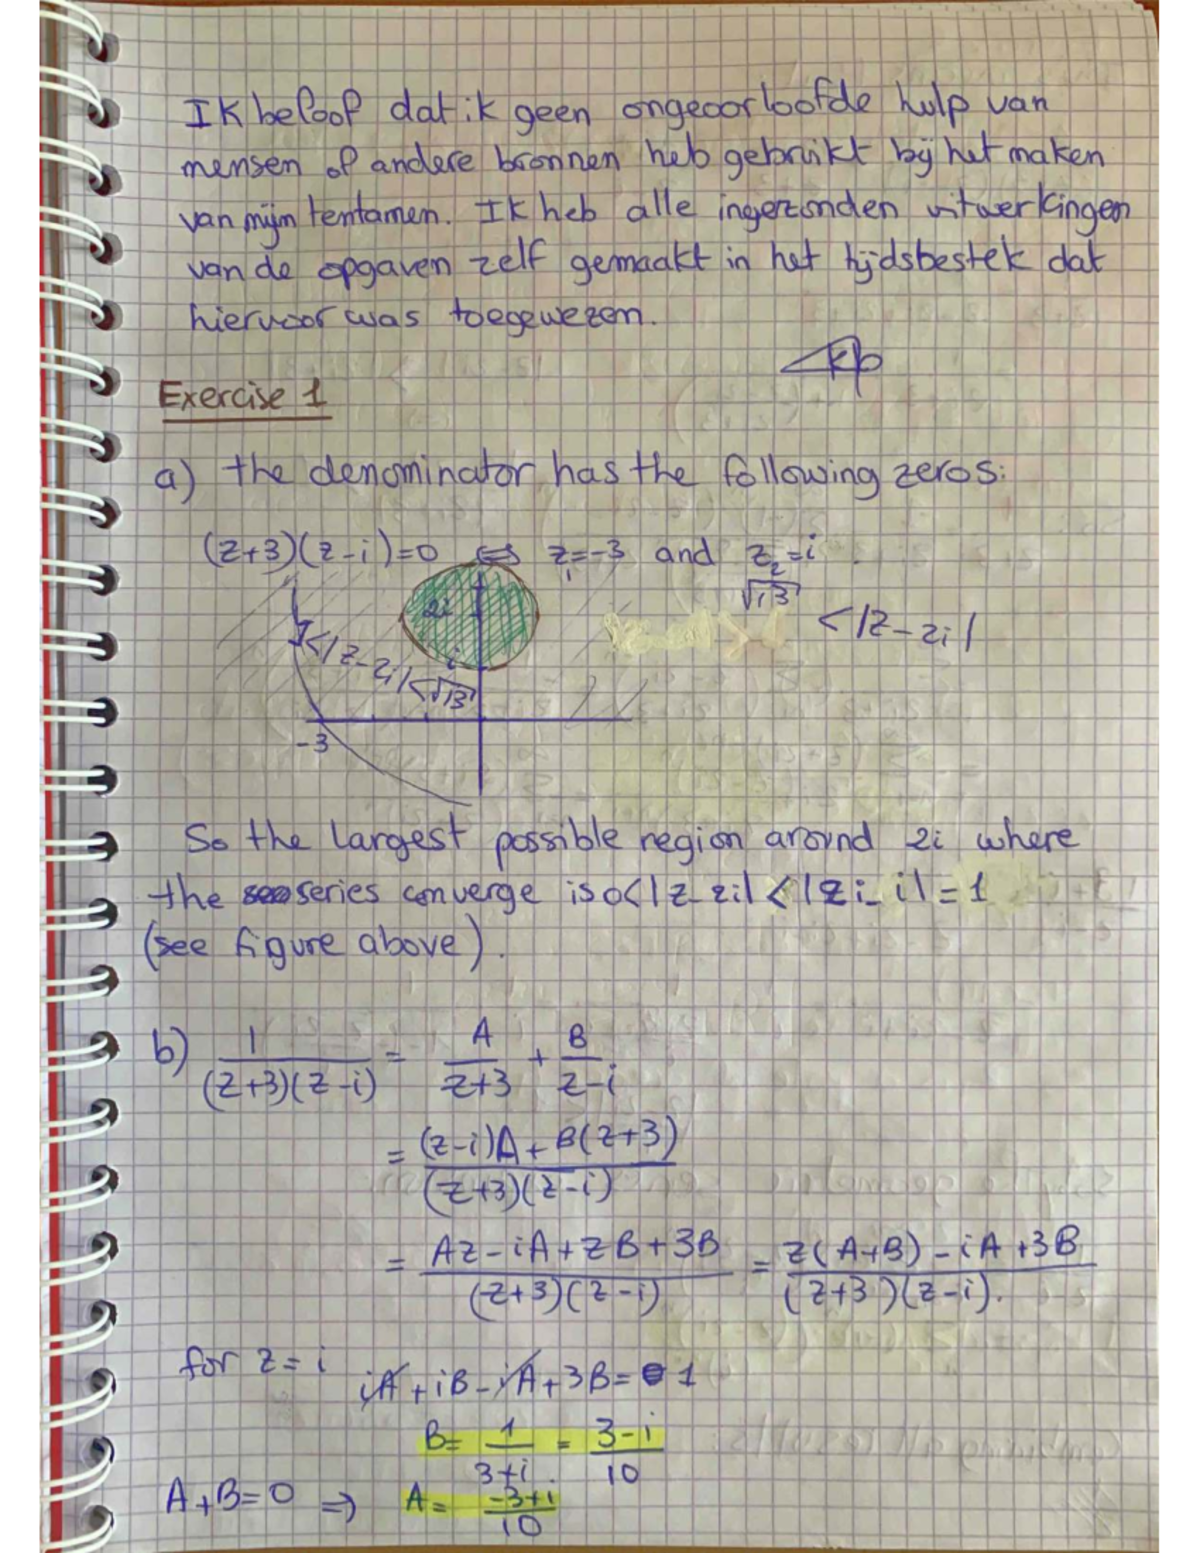 Ik beloof dat ik geen ongeoorloofde hulp van
mensen of andere bronnen heb gebruikt bij het maken
van mijn tentamen. Ik heb alle ingezonden uitwerkingen
van de opgaven zelf gemaakt in het tijdsbestek dat
hiervoor was toegewezen.
Exercise 1
a) the denominator has the following zeros:
(z+3)(z-i)=0 ⇔ z₁=-3 and z₂=i
√13 < |z-2i|
2i
i
1< |z-2i| < √13
-3
So the largest possible region around 2i where
the series converge is 0<|z-2i| < |2i-i| = 1
(see figure above).
b) 1/((z+3)(z-i)) = A/(z+3) + B/(z-i)
= ((z-i)A + B(z+3))/((z+3)(z-i))
= (Az-iA+zB+3B)/((z+3)(z-i)) = (z(A+B)-iA+3B)/((z+3)(z-i)).
for z=i iA+iB-iA+3B=1
B= 1/(3+i) = (3-i)/10
A+B=0 ⇒ A= (-3+i)/10